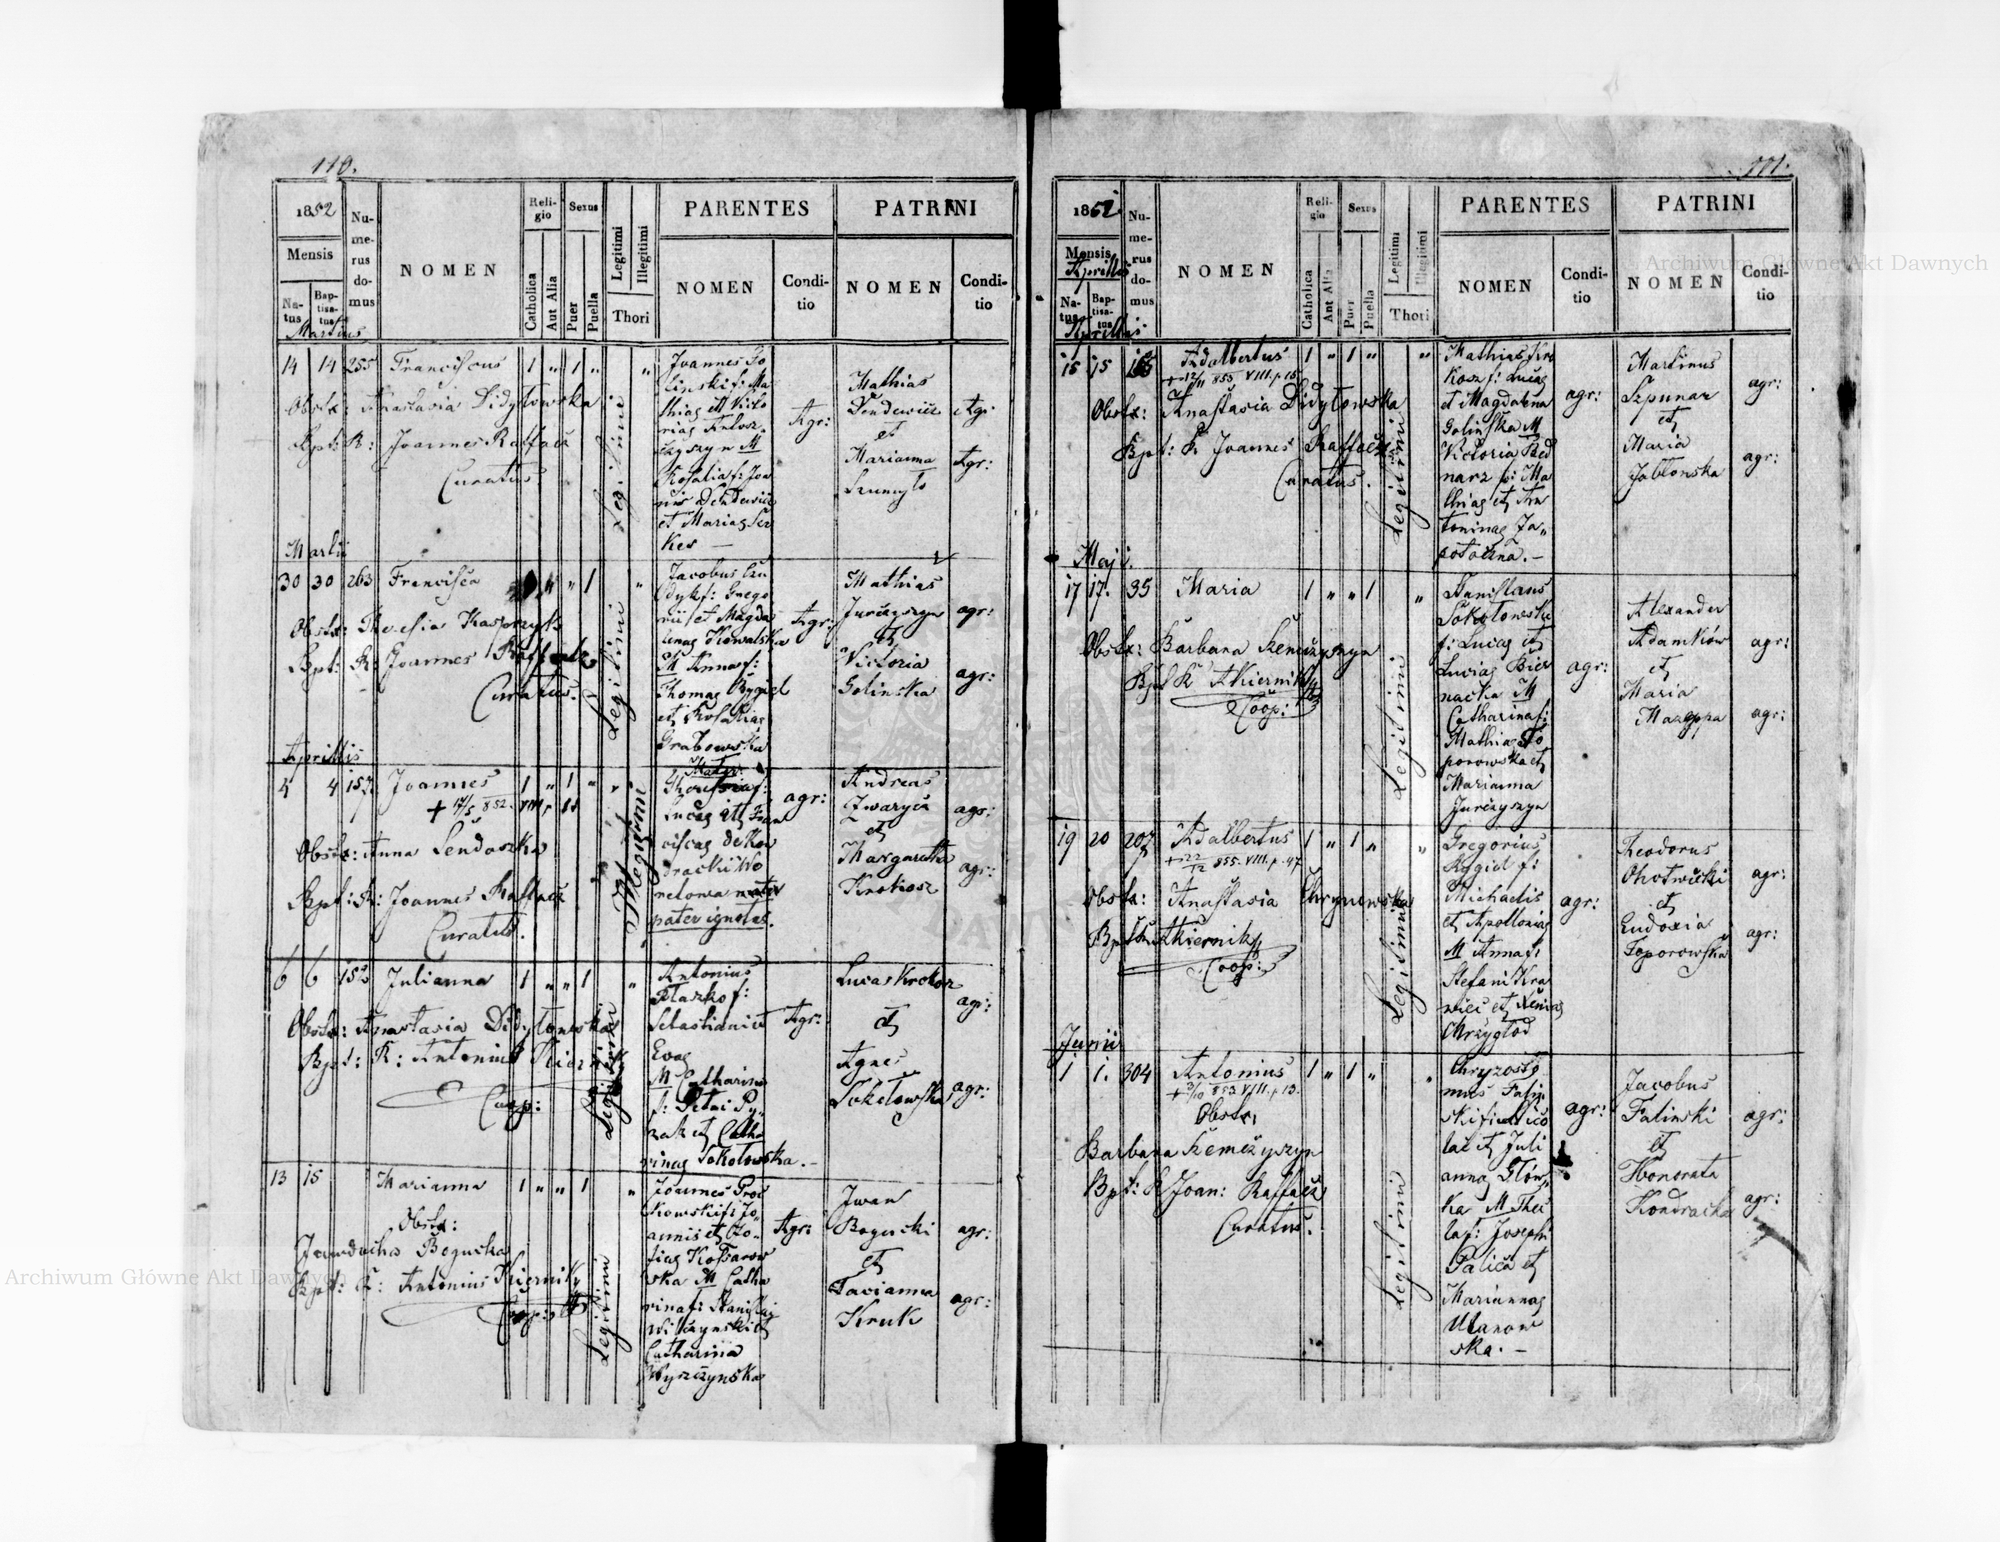 110.
1852
Mensis
Natus
Baptisatus
Numerus domus
NOMEN
Religio
Catholica
Aut Alia
Sexus
Puer
Puella
Legitimi
Illegitimi
Thori
PARENTES
NOMEN
Conditio
PATRINI
NOMEN
Conditio
Martius
14 14 255 Franciscus 1 " 1 " "
Obstx: Anastasia Didytowska
Bpt: K: Joannes Raffacz
Curatus
Legitimi
Joannes Go
linski f: Ma
thias et Victo
rias
M
Rosalia f: Joa
nis
et Marias
Agr:
Mathias
et
Marianna
Szumylo
Agr:
Agr:
Martii
30 30 263 Francisca " " 1 "
Obstx: Theresia Kasprzyk
Bpt: K: Joannes Raffacz
Curatus.
Legitimi
Jacobus
f: Grego
rii et Magda
lenas Kowalska
M Anna f:
Thomas Rygiel
et Rosalias
Grabowska
Agr:
Mathias
Jurczyszyn
et
Victoria
Golinska
agr:
agr:
Aprillis
4 4 157 Joannes 1 " 1 " "
+ 17/5 852. VIII. p 11
Obstx: Anna Sendoszka
Bpt: K: Joannes Raffacz
Curatus.
Illegitimi
Mater
Theresia f:
Lucas et Fran
ciscas
pater ignotus.
agr:
Andreas
Zwarycz
et
Margaretha
Krokosz
agr:
agr:
6 6 152 Julianna 1 " " 1 "
Obstx: Anastasia Didytowska
Bpt: K: Antonius Kiernik
Coop:
Legitimi
Antonius
Ptaszko f:
Sebastiani et
Evas
M Catharina
f: Petri Py
zak et Catha
rinas Sokolowska.
Agr:
Lucas Krokosz
et
Agnes
Sokolowska
agr:
agr:
13 15 Marianna 1 " " 1 "
Obstx:
Jewdocha Bogucka
Bpt: K: Antonius Kiernik
Coop:
Legitimi
Joannes Proc
kowski f: Jo
annis et Zo
fias Kossarow
ska M Catha
rina f: Stanislai
Wilczynski et
Catharina
Wyszczynska
Agr:
Iwan
Bogucki
et
Tacianna
Kruk
agr:
agr:
111.
1852
Mensis
Aprillis
Natus
Baptisatus
Aprillis
Numerus domus
NOMEN
Religio
Catholica
Aut Alia
Sexus
Puer
Puella
Legitimi
Illegitimi
Thori
PARENTES
NOMEN
Conditio
PATRINI
NOMEN
Conditio
15 15 Adalbertus 1 " 1 " "
+ 12/11 855 VIII. p. 15
Obstx: Anastasia Didytowska
Bpt: K Joannes Raffacz
Curatus.
Legitimi
Mathias Kro
kosz f: Lucas
et Magdalena
Golinska M
Victoria Bed
narz f: Ma
thias et An
toninas Za
potoczna.
agr:
Martinus
Szpunar
et
Maria
Jablonska
agr:
agr:
Maji.
17 17. 35 Maria 1 " " 1 "
Obstx: Barbara Kemczyszyn
Bpt K AKiernik
Coop:
Legitimi
Stanislaus
Sokolowski
f: Lucas et
Lucias Bier
nacka M
Catharina f:
Mathias To
porowska et
Marianna
Jurczyszyn
agr:
Alexander
Adamków
et
Maria
Mazeppa
agr:
agr:
19 20 207 Adalbertus 1 " 1 " "
+ 22/12 855. VIII. p. 47
Obstx: Anastasia Chrynowska
AKiernik
Coop:
Legitimi
Gregorius
Rygiel f:
Michaelis
et Apollonias
M Anna f:
Stefani Kra
wiec et Xenias
Chrzyglod
agr:
Theodorus
Ohotnicki
et
Eudoxia
Toporowska
agr:
agr:
Junii
1 1. 304 Antonius 1 " 1 " "
+ 3/10 853 VIII. p 13.
Obstx,
Barbara Kemczyszyn
Bpt: K Joan: Raffacz
Curatus.
Legitimi
Chryzosto
mus Falin
ski f: Nico
lai et Juli
annas Glów
ka M Thec
la f: Josephi
Palica et
Mariannas
Ulanow
ska.
agr:
Jacobus
Falinski
et
Honorata
Kondracka
agr:
agr:
Archiwum Główne Akt Dawnych
Archiwum Główne Akt Dawnych